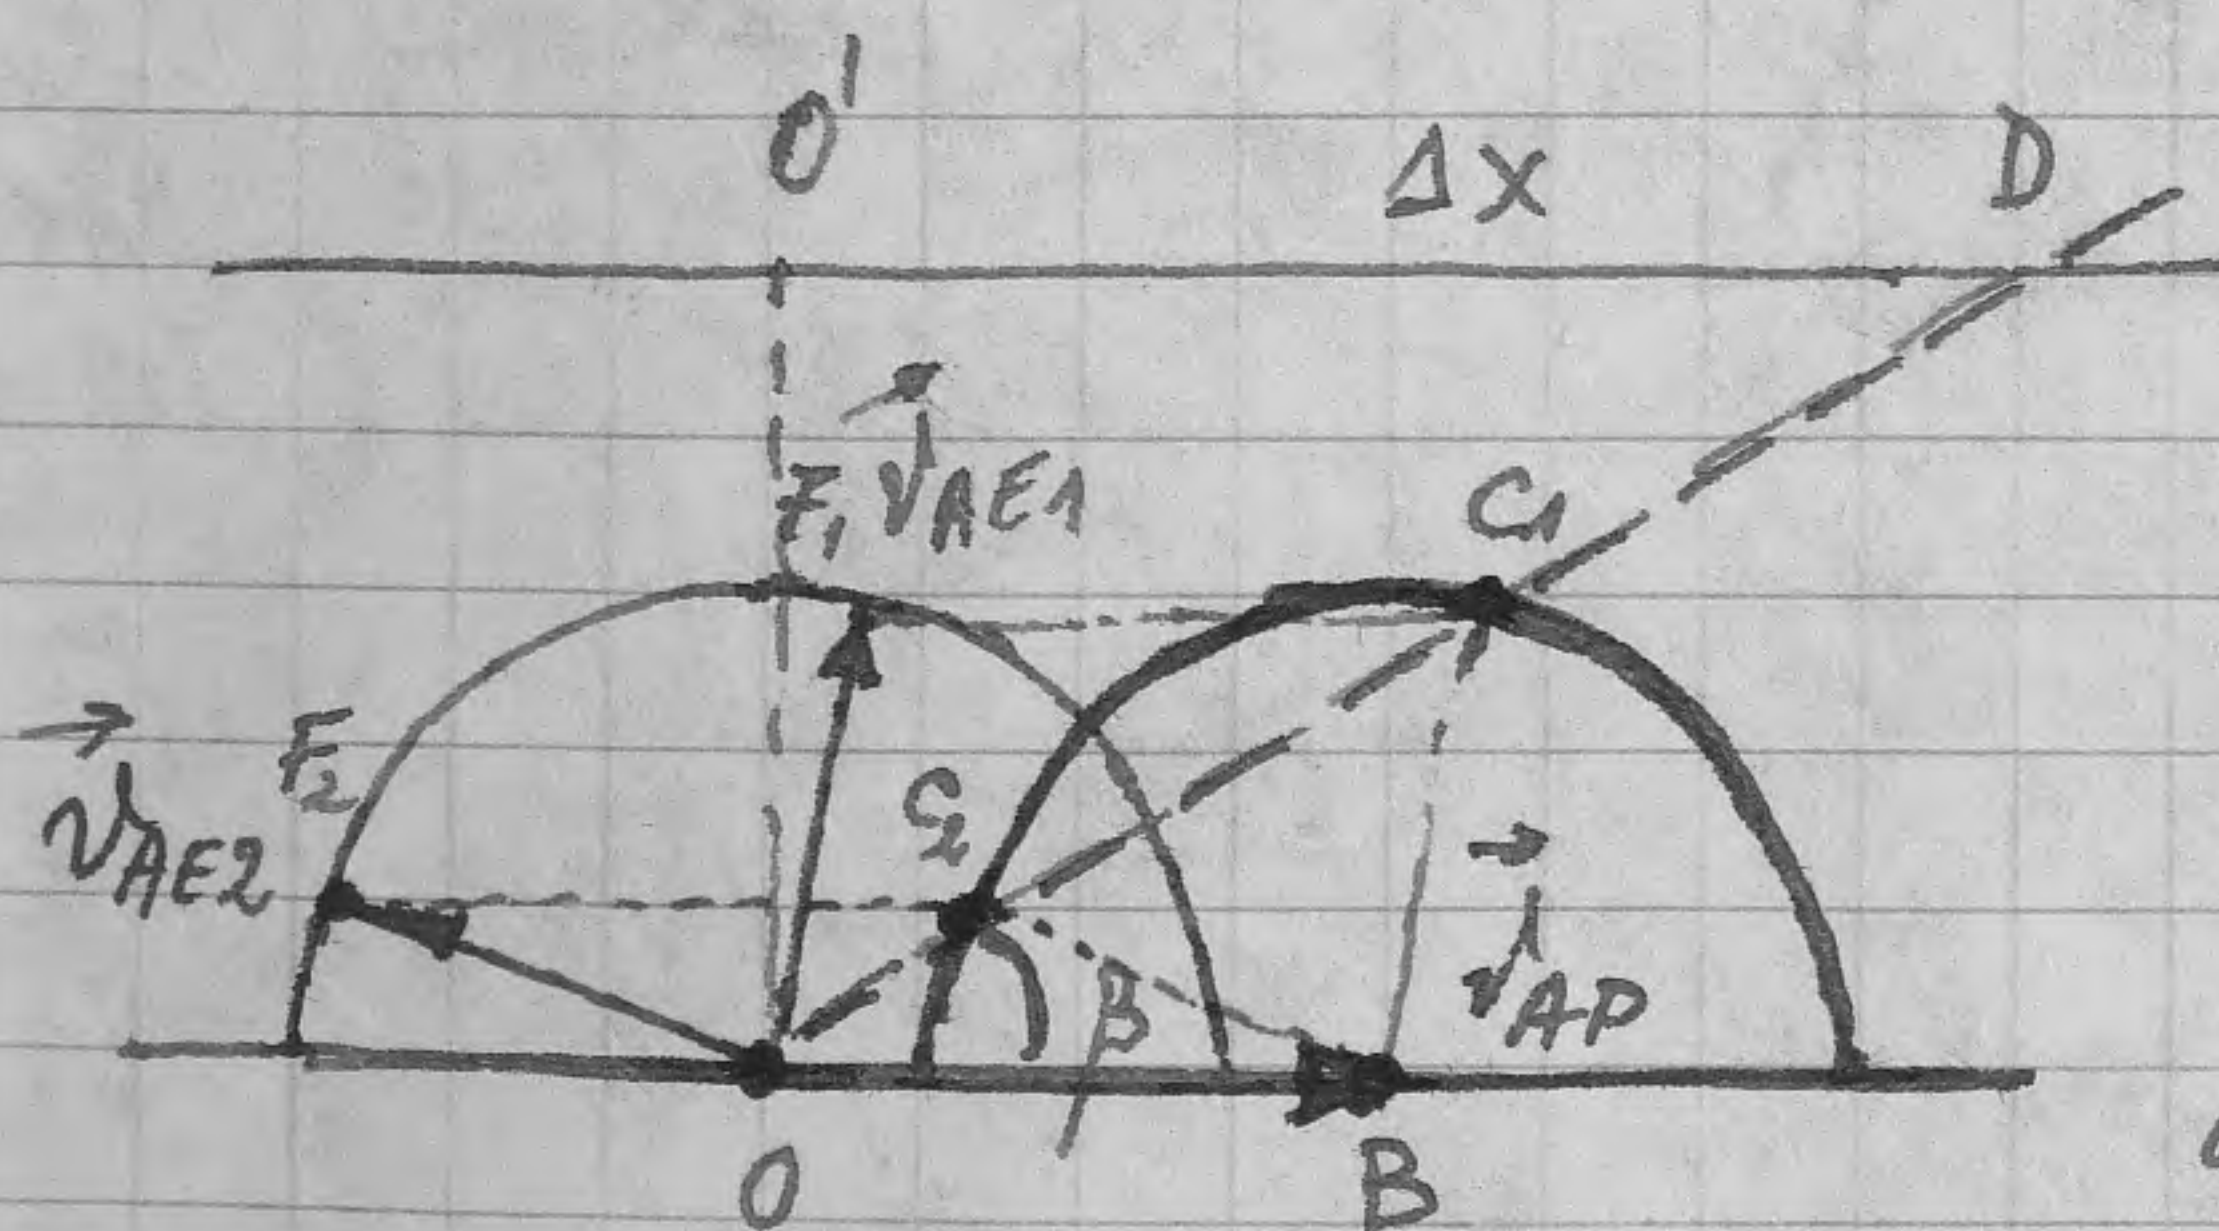 O'
Δx
D
F₁ v⃗AE1
C₁
F₂
v⃗AE2
C₂
β
v⃗AP
O
B